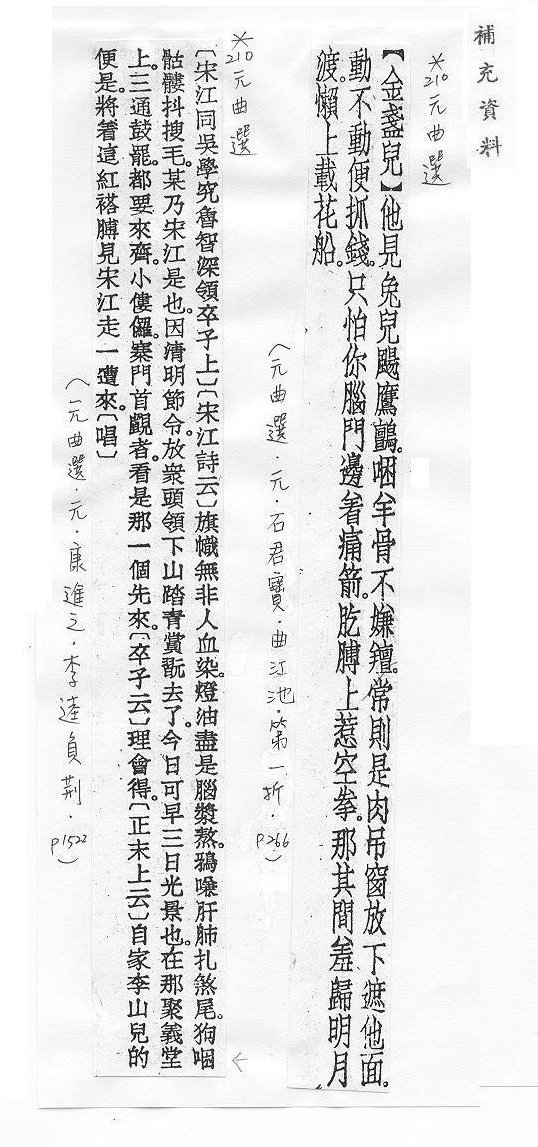 補充資料
※210元曲選
【金盞兒】他見兔兒颺鷹鸇。咽羊骨不嫌羶。常則是肉吊窗放下遮他面。
動不動便抓錢。只怕你腦門邊着痛箭。肐膊上惹空拳。那其間羞歸明月
渡。懶上載花船。
（元曲選．元．石君寶．曲江池．第一折．p266）
※210元曲選
〔宋江同吳學究魯智深領卒子上〕〔宋江詩云〕旗幟無非人血染。燈油盡是腦漿熬。鴉嗛肝肺扎煞尾。狗咽
骷髏抖搜毛。某乃宋江是也。因清明節令。放衆頭領下山踏青賞翫去了。今日可早三日光景也。在那聚義堂
上。三通鼓罷。都要來齊。小僂儸寨門首覷者。看是那一個先來。〔卒子云〕理會得。〔正末上云〕自家李山兒的
便是。將着這紅褡膊見宋江走一遭來。〔唱〕
（元曲選．元．康進之．李逵負荊．p1522）